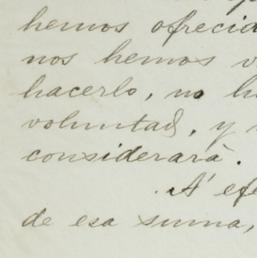 hemos ofrecid
nos hemos v
hacerlo, no h
voluntad, y
considerará.
A' efe
de esa suma,